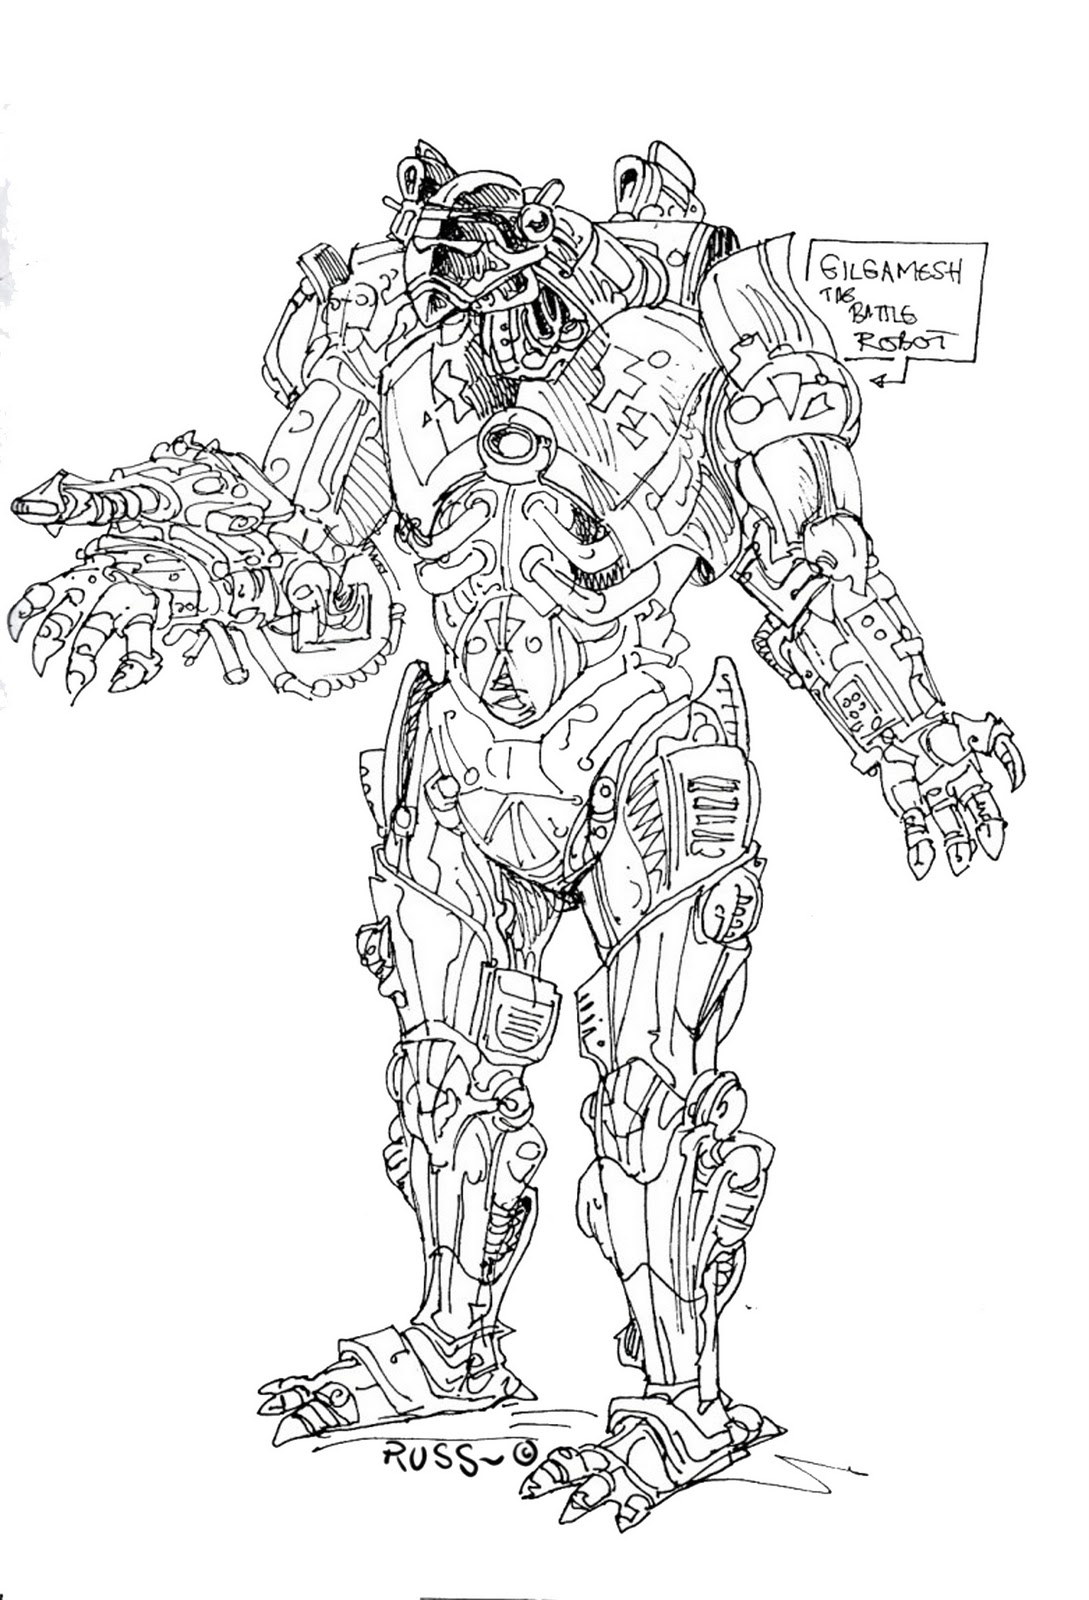 GILGAMESH
THE
BATTLE
ROBOT
RUSS~©